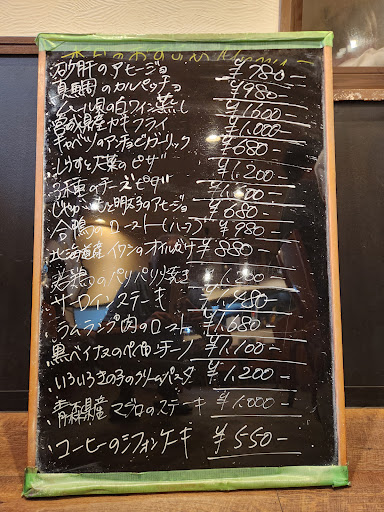 本日のおすすめ Menu
砂肝のアヒージョ ¥780-
真鯛のカルパッチョ ¥980-
ムール貝の白ワイン蒸し ¥1,600-
宮城県産カキフライ ¥1,000-
キャベツのアンチョビガーリック ¥680-
しらすと大葉のピザ ¥1,200-
3種のチーズピザ
じゃがいもと明太子のアヒージョ ¥680-
合鴨のロースト(ハーフ) ¥980-
北海道産イワシのオイルがけ ¥880-
若鶏のパリパリ焼き ¥1,200-
サーロインステーキ ¥1,480-
ラムランプ肉のロースト ¥1,680-
黒ベイナスのペペロンチーノ ¥1,100-
いろいろきの子のクリームパスタ ¥1,200-
青森県産マグロのステーキ ¥1,000-
コーヒーのシフォンケーキ ¥550-